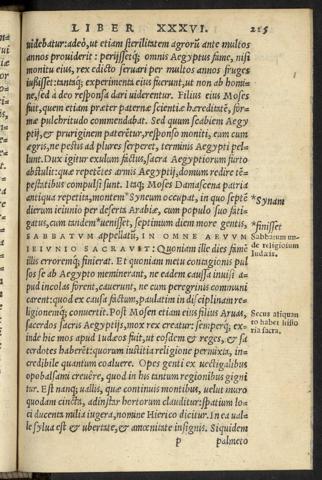 LIBER XXXVI. 215
uidebatur: adeò, ut etiam sterilitatem agrorū ante multos
annos prouiderit: perijssetq́; omnis Aegyptus fame, nisi
monitu eius, rex edicto seruari per multos annos fruges
iussisset: tantaq́; experimenta eius fuerunt, ut non ab homi=
ne, sed à deo responsa dari uiderentur. Filius eius Moses
fuit, quem etiam præter paternæ scientiæ hæreditatē, for=
mæ pulchritudo commendabat. Sed quum scabiem Aegy
ptij, & pruriginem paterētur, responso moniti, eum cum
ægris, ne pestis ad plures serperet, terminis Aegypti pel=
lunt. Dux igitur exulum factus, sacra Aegyptiorum furto
abstulit: quæ repetētes armis Aegyptij, domum redire tē=
pestatibus compulsi sunt. Itaq; Moses Damascena patria
antiqua repetita, montem *Syneum occupat, in quo septē
dierum ieiunio per deserta Arabiæ, cum populo suo fati=
gatus, cum tandem *uenisset, septimum diem more gentis,
SABBATVM appellatū, IN OMNE AEVVM
IEIVNIO SACRAVIT: Quoniam ille dies famē
illis erroremq́; finierat. Et quoniam metu contagionis pul
sos se ab Aegypto meminerant, ne eadem caussa inuisi a=
pud incolas forent, cauerunt, ne cum peregrinis communi
carent: quod ex causa factum, paulatim in disciplinam re=
ligionemq́; conuertit. Post Mosen etiam eius filius Aruas,
sacerdos sacris Aegyptijs, mox rex creatur: semperq́; ex=
inde hic mos apud Iudæos fuit, ut eosdem & reges, & sa
cerdotes haberēt: quorum iustitia religione permixta, in=
credibile quantum coaluere. Opes genti ex uectigalibus
opobalsami creuêre, quod in his tantum regionibus gigni
tur. Est nanq; uallis, quæ continuis montibus, uelut muro
quodam cincta, ad instar hortorum clauditur: spatium lo=
ci ducenta milia iugera, nomine Hierico dicitur. In ea ual=
le sylua est & ubertate, & amœnitate insignis. Siquidem
p palmeto
*Synam
*finisset
Sabbatum un=
de religiosum
Iudæis.
Secus aliquan
to habet histo
ria sacra.